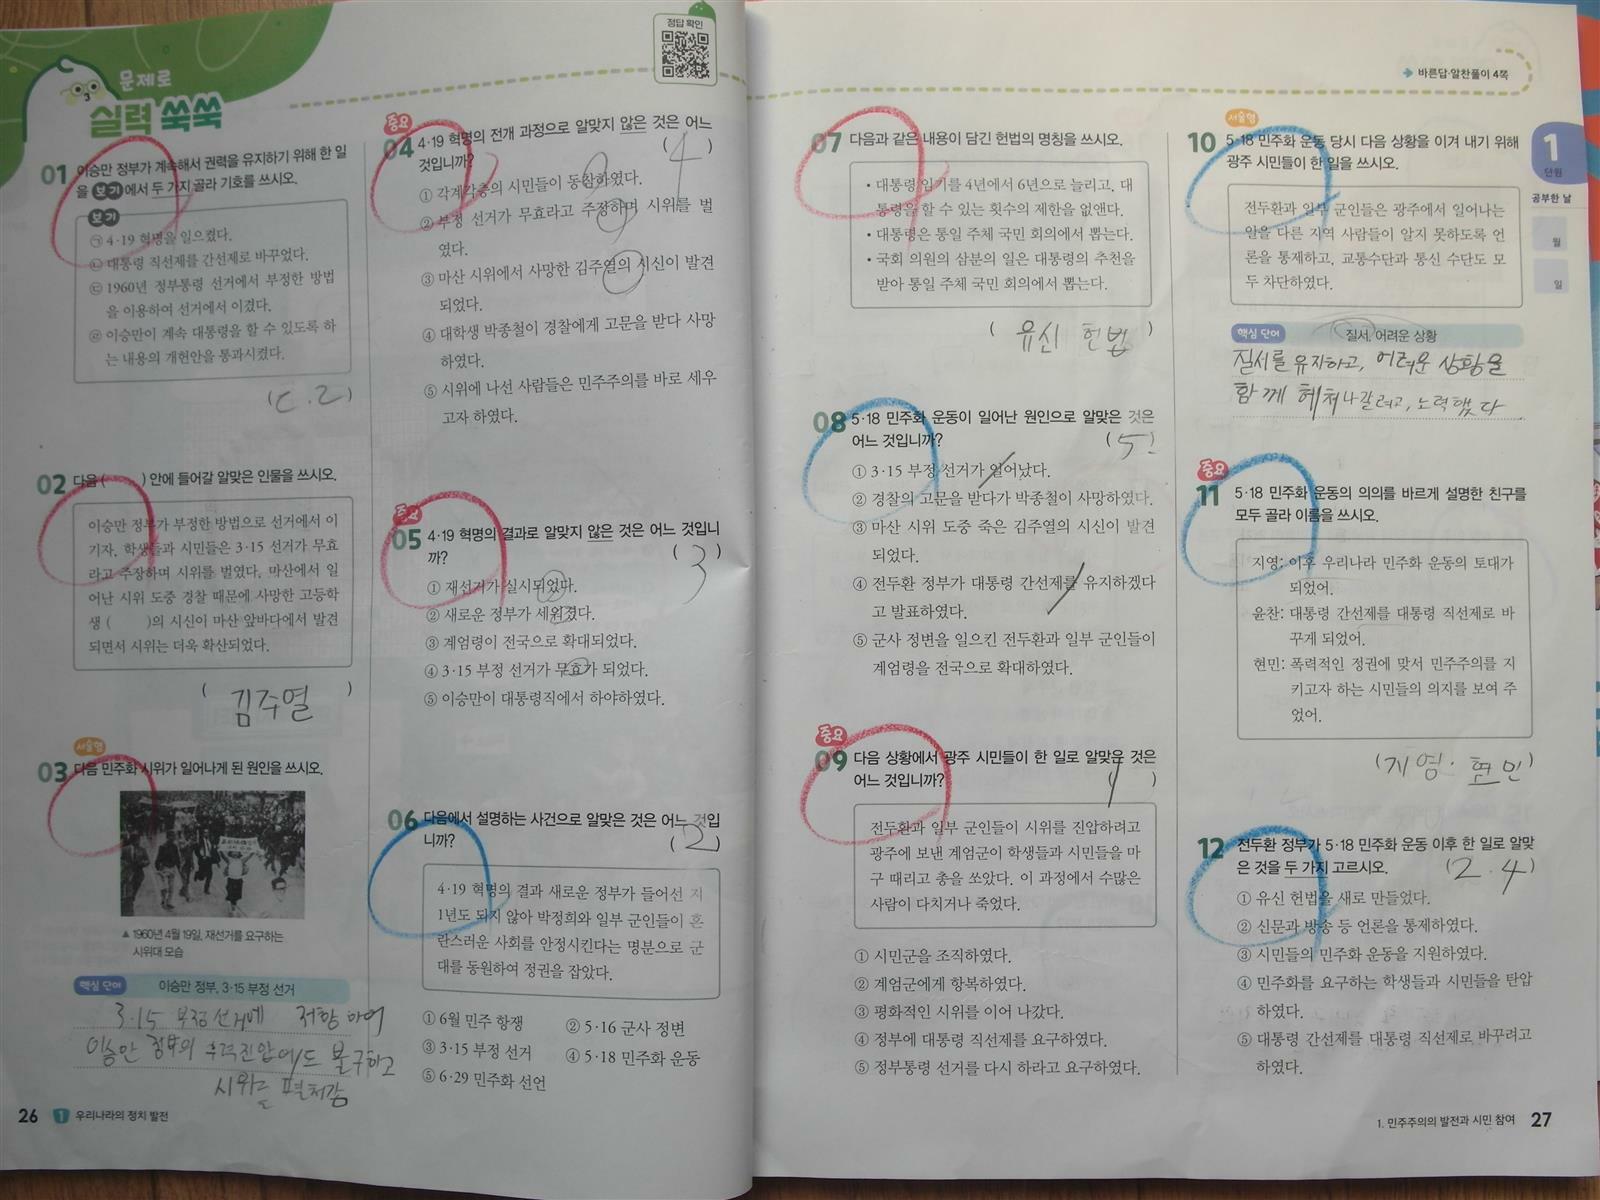 정답 확인
문제로
실력 쑥쑥
01 이승만 정부가 계속해서 권력을 유지하기 위해 한 일
을 보기 에서 두 가지 골라 기호를 쓰시오.
보기
㉠ 4·19 혁명을 일으켰다.
㉡ 대통령 직선제를 간선제로 바꾸었다.
㉢ 1960년 정부통령 선거에서 부정한 방법
을 이용하여 선거에서 이겼다.
㉣ 이승만이 계속 대통령을 할 수 있도록 하
는 내용의 개헌안을 통과시켰다.
(ㄷ.ㄹ)
02 다음 ( ) 안에 들어갈 알맞은 인물을 쓰시오.
이승만 정부가 부정한 방법으로 선거에서 이
기자, 학생들과 시민들은 3·15 선거가 무효
라고 주장하며 시위를 벌였다. 마산에서 일
어난 시위 도중 경찰 때문에 사망한 고등학
생 ( )의 시신이 마산 앞바다에서 발견
되면서 시위는 더욱 확산되었다.
( 김주열 )
서술형
03 다음 민주화 시위가 일어나게 된 원인을 쓰시오.
▲ 1960년 4월 19일, 재선거를 요구하는
시위대 모습
핵심 단어 이승만 정부, 3·15 부정 선거
3.15 부정선거에 저항하여
이승만 정부의 무력진압에도 불구하고
시위를 펼쳐감
26 1 우리나라의 정치 발전
중요
04 4·19 혁명의 전개 과정으로 알맞지 않은 것은 어느
것입니까? ( 4 )
① 각계각층의 시민들이 동참하였다.
② 부정 선거가 무효라고 주장하며 시위를 벌
였다.
③ 마산 시위에서 사망한 김주열의 시신이 발견
되었다.
④ 대학생 박종철이 경찰에게 고문을 받다 사망
하였다.
⑤ 시위에 나선 사람들은 민주주의를 바로 세우
고자 하였다.
중요
05 4·19 혁명의 결과로 알맞지 않은 것은 어느 것입니
까? ( 3 )
① 재선거가 실시되었다.
② 새로운 정부가 세워졌다.
③ 계엄령이 전국으로 확대되었다.
④ 3·15 부정 선거가 무효가 되었다.
⑤ 이승만이 대통령직에서 하야하였다.
06 다음에서 설명하는 사건으로 알맞은 것은 어느 것입
니까? ( 2 )
4·19 혁명의 결과 새로운 정부가 들어선 지
1년도 되지 않아 박정희와 일부 군인들이 혼
란스러운 사회를 안정시킨다는 명분으로 군
대를 동원하여 정권을 잡았다.
① 6월 민주 항쟁 ② 5·16 군사 정변
③ 3·15 부정 선거 ④ 5·18 민주화 운동
⑤ 6·29 민주화 선언
바른답·알찬풀이 4쪽
07 다음과 같은 내용이 담긴 헌법의 명칭을 쓰시오.
• 대통령 임기를 4년에서 6년으로 늘리고, 대
통령을 할 수 있는 횟수의 제한을 없앤다.
• 대통령은 통일 주체 국민 회의에서 뽑는다.
• 국회 의원의 삼분의 일은 대통령의 추천을
받아 통일 주체 국민 회의에서 뽑는다.
( 유신 헌법 )
08 5·18 민주화 운동이 일어난 원인으로 알맞은 것은
어느 것입니까? ( 5 )
① 3·15 부정 선거가 일어났다.
② 경찰의 고문을 받다가 박종철이 사망하였다.
③ 마산 시위 도중 죽은 김주열의 시신이 발견
되었다.
④ 전두환 정부가 대통령 간선제를 유지하겠다
고 발표하였다.
⑤ 군사 정변을 일으킨 전두환과 일부 군인들이
계엄령을 전국으로 확대하였다.
중요
09 다음 상황에서 광주 시민들이 한 일로 알맞은 것은
어느 것입니까? ( 1 )
전두환과 일부 군인들이 시위를 진압하려고
광주에 보낸 계엄군이 학생들과 시민들을 마
구 때리고 총을 쏘았다. 이 과정에서 수많은
사람이 다치거나 죽었다.
① 시민군을 조직하였다.
② 계엄군에게 항복하였다.
③ 평화적인 시위를 이어 나갔다.
④ 정부에 대통령 직선제를 요구하였다.
⑤ 정부통령 선거를 다시 하라고 요구하였다.
서술형
10 5·18 민주화 운동 당시 다음 상황을 이겨 내기 위해
광주 시민들이 한 일을 쓰시오.
전두환과 일부 군인들은 광주에서 일어나는
일을 다른 지역 사람들이 알지 못하도록 언
론을 통제하고, 교통수단과 통신 수단도 모
두 차단하였다.
핵심 단어 질서, 어려운 상황
질서를 유지하고, 어려운 상황을
함께 헤쳐나갈려고, 노력했다
중요
11 5·18 민주화 운동의 의의를 바르게 설명한 친구를
모두 골라 이름을 쓰시오.
지영: 이후 우리나라 민주화 운동의 토대가
되었어.
윤찬: 대통령 간선제를 대통령 직선제로 바
꾸게 되었어.
현민: 폭력적인 정권에 맞서 민주주의를 지
키고자 하는 시민들의 의지를 보여 주
었어.
(지영. 현민)
12 전두환 정부가 5·18 민주화 운동 이후 한 일로 알맞
은 것을 두 가지 고르시오. (2.4)
① 유신 헌법을 새로 만들었다.
② 신문과 방송 등 언론을 통제하였다.
③ 시민들의 민주화 운동을 지원하였다.
④ 민주화를 요구하는 학생들과 시민들을 탄압
하였다.
⑤ 대통령 간선제를 대통령 직선제로 바꾸려고
하였다.
1
단원
공부한 날
월
일
1. 민주주의의 발전과 시민 참여 27